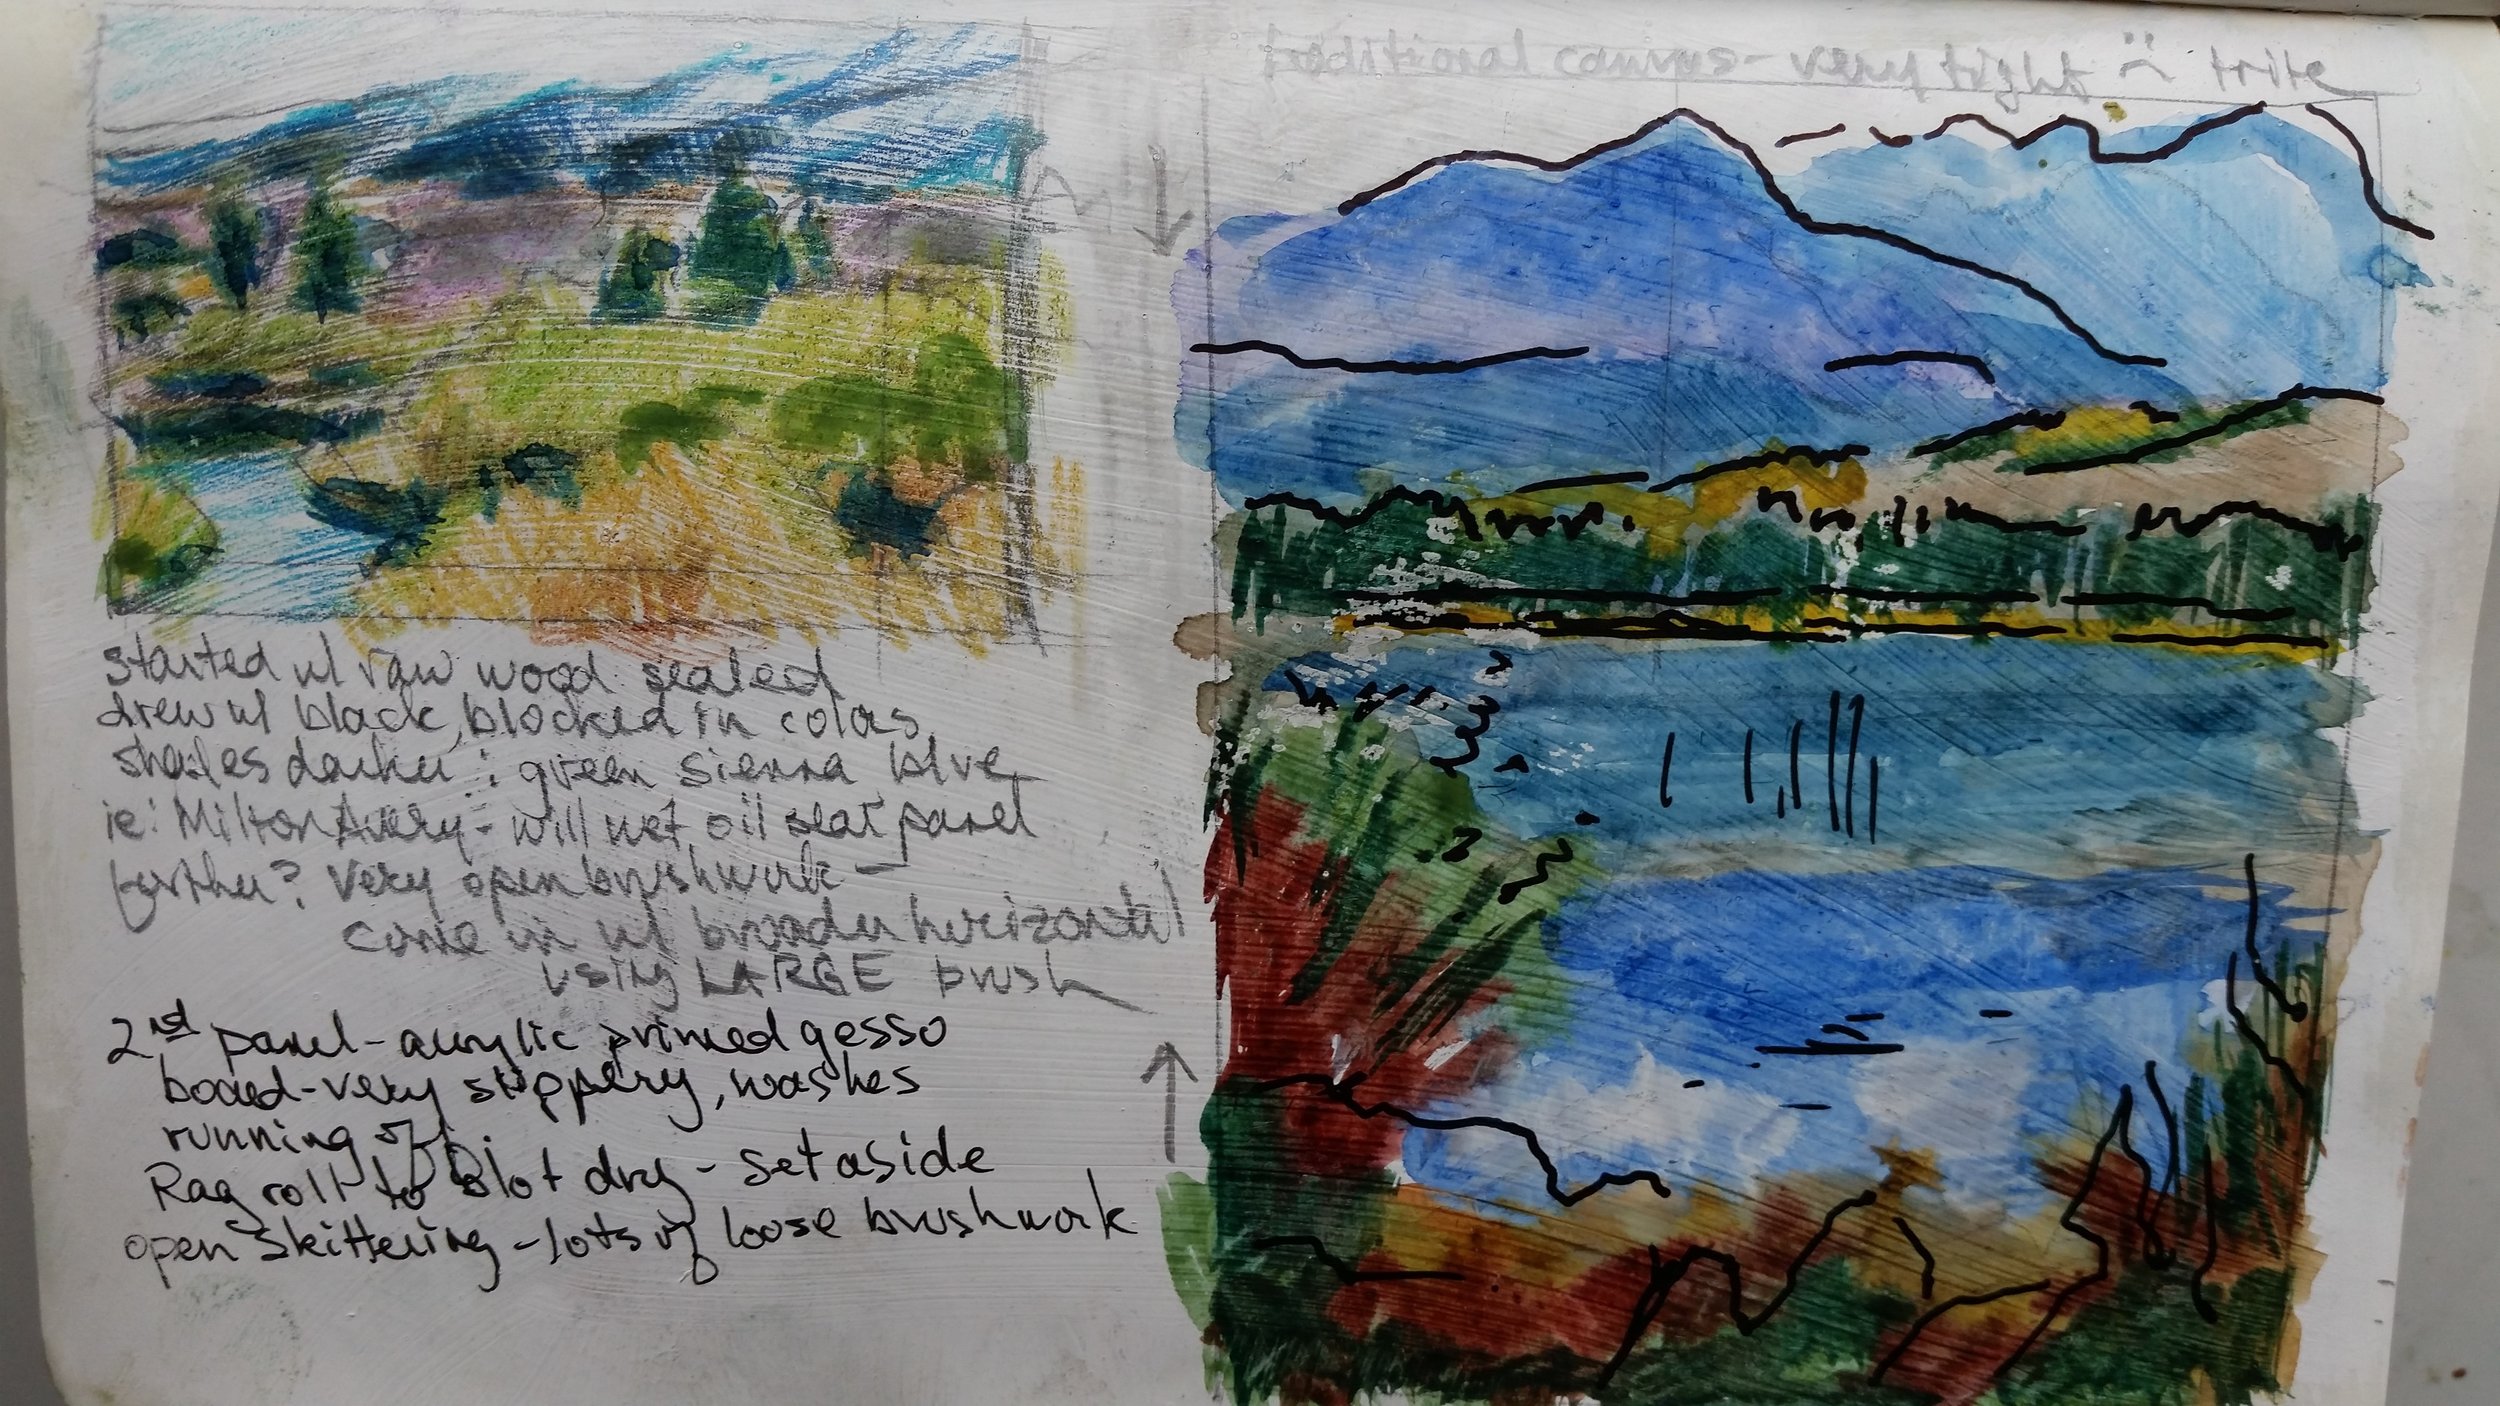 traditional canvas - very tight :( trite
started w/ raw wood sealed
drew w/ black, blocked in colors
shades darker: green sienna blue
ie: Milton Avery - will wet oil seal panel
further? Very open brushwork -
come in w/ broader horizontal
using LARGE brush
2nd panel - acrylic primed gesso
board - very slippery, washes
running off.
Rag roll to Blot dry - set aside
open skittering - lots of loose brushwork